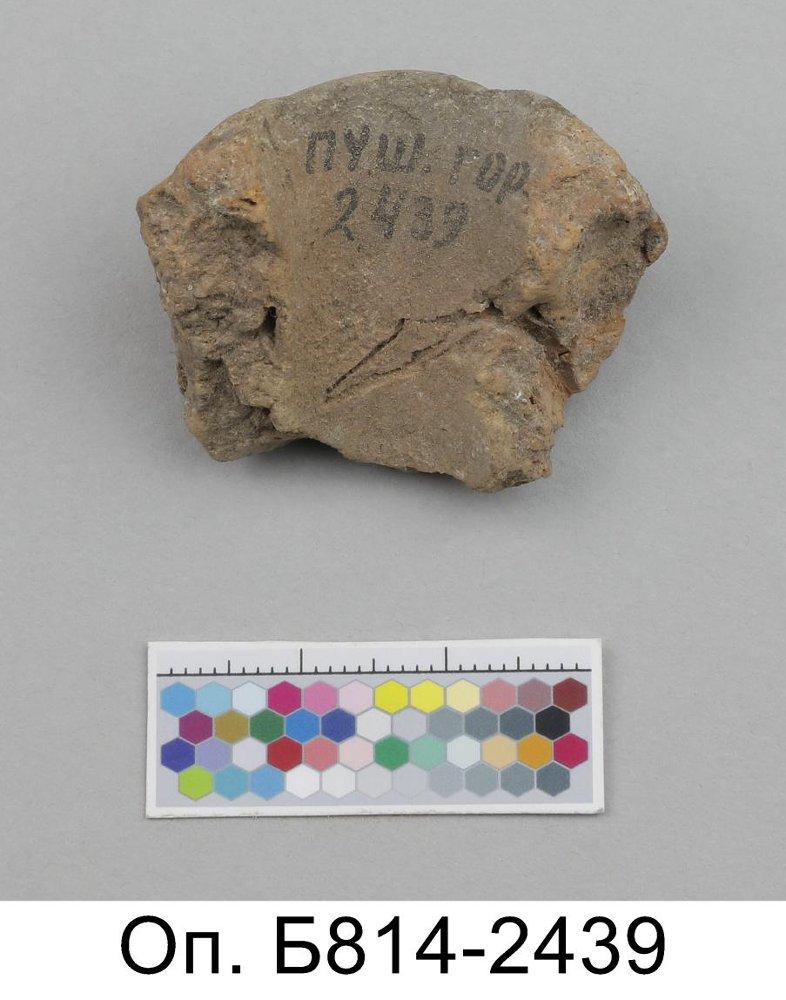 ПУШ. ГОР.
2439
Оп. Б814-2439